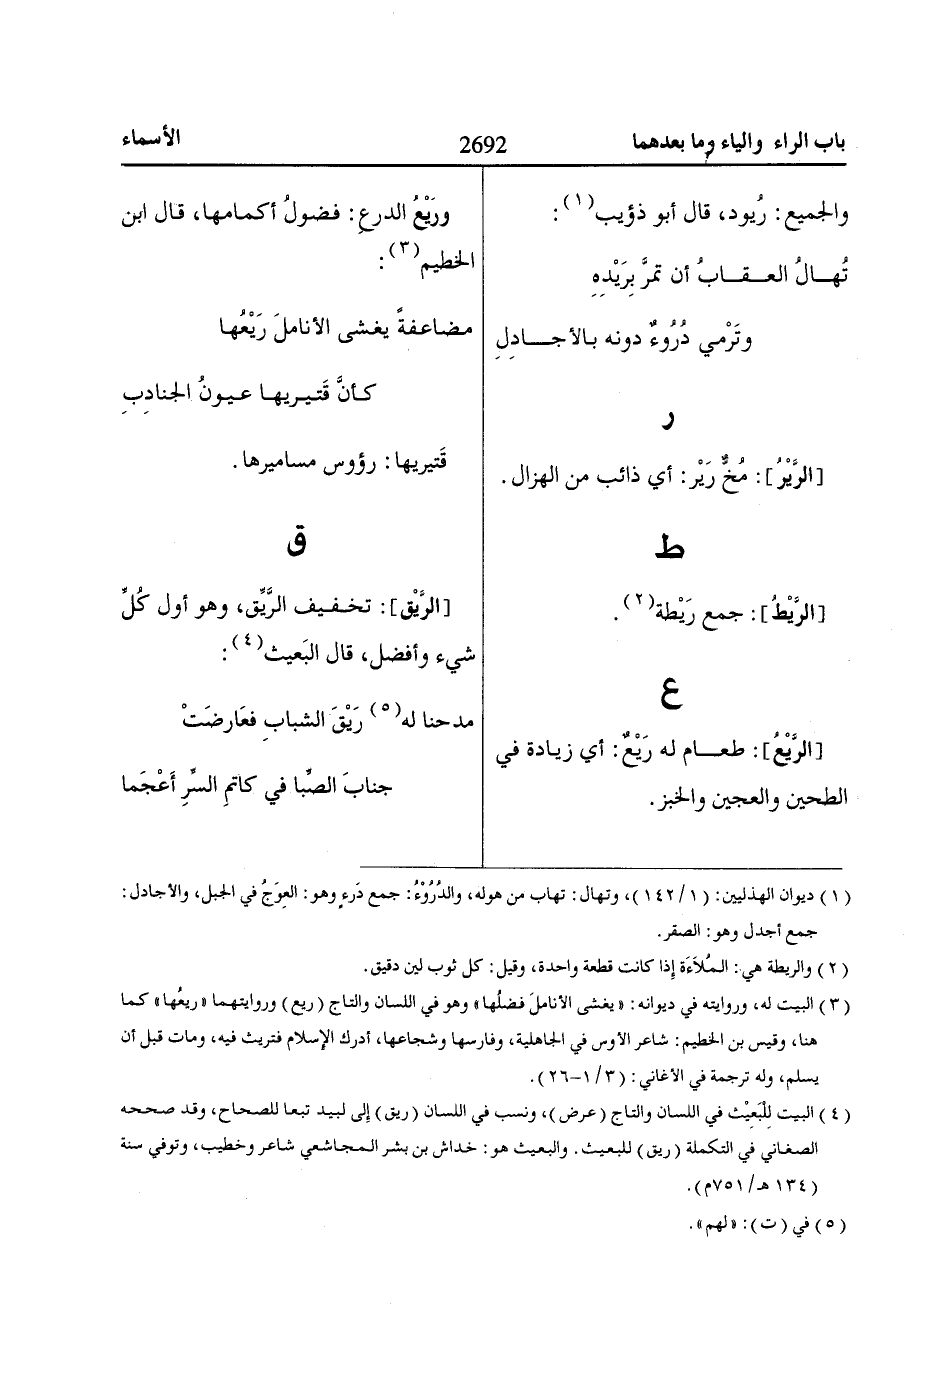 باب الراء والياء وما بعدهما 2692 الأسماء
والجميع: رُيود، قال أبو ذؤيب(١):
تُهـالُ العـقـابُ أن تمرَّ بِرَيْدِهِ
وتَرْمي دُرُوءٌ دونه بالأجـادلِ
ر
[الرَّيْرُ]: مُخٌّ رَيْر: أي ذائب من الهزال.
ط
[الرَّيْطُ]: جمع رَيْطة(٢).
ع
[الرَّيْعُ]: طعـام له رَيْعٌ: أي زيادة في
الطحين والعجين والخبز.
ورَيْعُ الدرعِ: فضولُ أكمامها، قال ابن
الخطيم(٣):
مضاعفةً يغشى الأناملَ رَيْعُها
كأنَّ قَتيـريهـا عيـونُ الجنادِبِ
قَتيريها: رؤوس مساميرها.
ق
[الرَّيْق]: تخـفـيف الرَّيِّق، وهو أول كُلِّ
شيء وأفضل، قال البَعيث(٤):
مدحنا له(٥) رَيْقَ الشبابِ فعَارضَتْ
جنابَ الصِّبا في كاتمِ السرِّ أَعْجَما
(١) ديوان الهذليين: (١/١٤٢)، وتهال: تهاب من هوله، والدُرُوْءُ: جمع دَرء وهو: العوَجُ في الجبل، والأجادل:
جمع أجدل وهو: الصقر.
(٢) والريطة هي: المُلاَءَة إذا كانت قطعة واحدة، وقيل: كل ثوب لين دقيق.
(٣) البيت له، وروايته في ديوانه: «يغشى الأناملَ فضلُها» وهو في اللسان والتاج (ريع) وروايتهما «ريعُها» كما
هنا، وقيس بن الخطيم: شاعر الأوس في الجاهلية، وفارسها وشجاعها، أدرك الإسلام فتريث فيه، ومات قبل أن
يسلم، وله ترجمة في الأغاني: (٣/١–٢٦).
(٤) البيت لِلْبَعِيْث في اللسان والتاج (عرض)، ونسب في اللسان (ريق) إلى لبيد تبعا للصحاح، وقد صححه
الصغاني في التكملة (ريق) للبعيث. والبعيث هو: خداش بن بشر المجاشعي شاعر وخطيب، وتوفي سنة
(١٣٤ هـ/٧٥١م).
(٥) في (ت): «لهم».